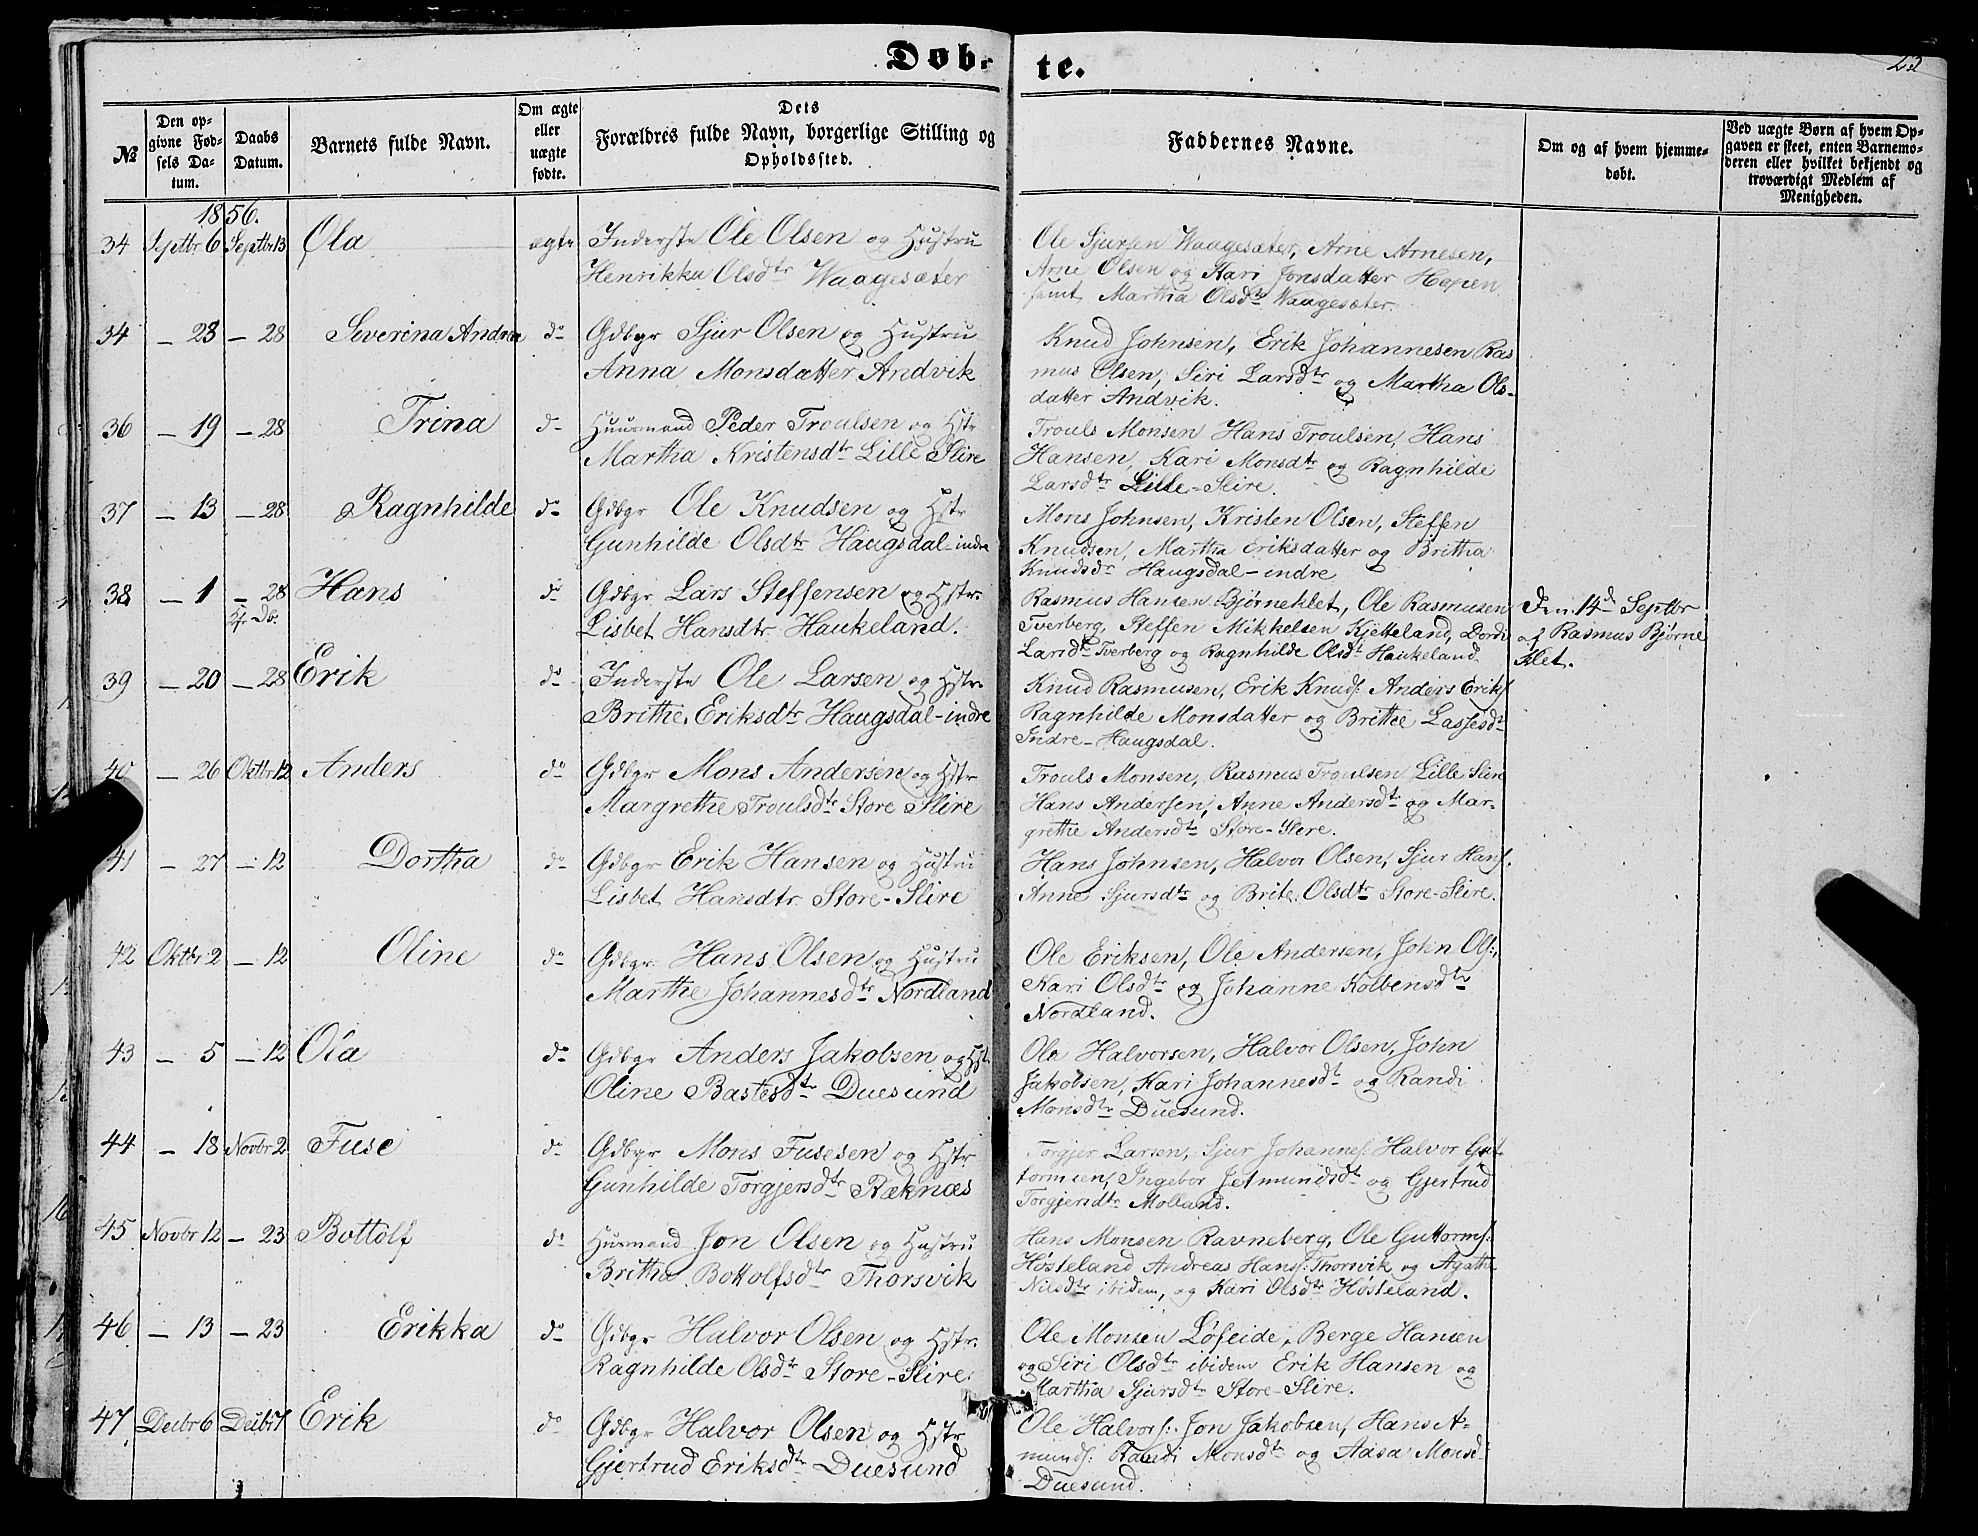 Døb-te.
23
№
Den opgivne Fødsels Datum.
Daabs Datum.
Barnets fulde Navn.
Om ægte eller uægte fødte.
Dets Forældres fulde Navn, borgerlige Stilling og Opholdssted.
Faddernes Navne.
Om og af hvem hjemmedøbt.
Ved uægte Børn af hvem Opgaven er skeet, enten Barnemoderen eller hvilket bekjendt og troværdigt Medlem af Menigheden.
1856.
34 Septbr 6 Septbr 13 Ola ægte Inderste Ole Olsen og Hustru
Henrikka Olsdtr Waagesæter
Ole Sjursen Waagesæter, Arne Arnesen,
Arne Olsen og Kari Jonsdatter
samt Martha Olsdtr Waagesæter.
34 – 23 – 28 Severina Andrea do Gdbgr Sjur Olsen og Hustru
Anna Monsdatter Andvik
Knud Johnsen, Erik Johannesen Ras
mus Olsen, Siri Larsdtr og Martha Ols-
datter Andvik.
36 – 19 – 28 Trina do Huusmand Peder Troulsen og Hstr
Martha Kristensdtr Lille Slire
Trouls Monsen Hans Troulsen, Hans
Hansen, Kari Monsdtr og Ragnhilde
Larsdtr Lille-Slire.
37 – 13 – 28 Ragnhilde do Gdbgr Ole Knudsen og Hstr
Gunhilde Olsdtr Haugsdal-indre
Mons Johnsen, Kristen Olsen, Steffen
Knudsen, Martha Eriksdatter og Britha
Knudsdr Haugsdal-indre
38 – 1 – 28 Hans do Gdbgr Lars Steffensen og Hstr.
Lisbet Hansdtr. Haukeland.
Rasmus Hansen Bjørneklet, Ole Rasmusen
Tverberg, Steffen Mikkelsen Kjetteland, Dordi
Larsdtr Tverberg og Ragnhilde Olsdt Haukeland
Den 14d Septbr
af Rasmus Bjørne
klet.
39 – 20 – 28 Erik do Inderste Ole Larsen og Hstr.
Brithe Eriksdtr Haugsdal-indre
Knud Rasmusen, Erik Knuds: Anders Eriks
Ragnhilde Monsdatter og Brithe Lassesdt
Indre-Haugsdal.
40 – 26 Oktbr 12 Anders do Gdbgr Mons Andersen og Hstr
Margrethe Troulsdtr Store Slire
Trouls Monsen, Rasmus Troulsen Lille Slire
Hans Andersen, Anne Andersdtr og Mar-
grethe Andersdtr Store-Slire.
41 – 27 – 12 Dortha do Gdbgr Erik Hansen og Hustru
Lisbet Hansdtr. Store-Slire
Hans Johnsen, Halvor Olsen, Sjur Hans.
Anne Sjursdtr og Brite Olsdtr Store-Slire.
42 Oktbr 2 – 12 Oline do Gdbgr. Hans Olsen og Hustru
Marthe Johannesdtr Nordland
Ole Eriksen, Ole Andersen, John Ols:,
Kari Olsdtr og Johanne Kolbensdtr
Nordland.
43 – 5 – 12 Ola do Gdbgr Anders Jakobsen og Hst.
Oline Bastesdtr Duesund
Ole Halvorsen, Halvor Olsen, John
Jakobsen, Kari Johannesdt og Randi
Monsdtr Duesund.
44 – 18 Novbr 2 Fuse do Gdbgr Mons Fusesen og Hstr
Gunhilde Torgjersdtr Ræknæs
Torgjer Larsen, Sjur Johannes: Halvor Gut
tormsen, Ingebor Jetmundsdt og Gjertrud
Torgjersdtr Molland.
45 Novbr 12 – 23 Bottolf do Husmand Jon Olsen og Hustru
Britha Bottolfsdtr Thorsvik
Hans Monsen Ravneberg, Ole Guttorms:
Høsteland Andreas Hans: Thorsvik og Agathe
Nilsdtr ibidem, og Kari Olsdtr Høsteland.
46 – 13 – 23 Erikka do Gdbgr Halvor Olsen og Hstr.
Ragnhilde Olsdtr Store-Slire.
Ole Monsen Løfeide, Berge Hansen
og Siri Olsdtr ibidem Erik Hansen og
Martha Sjursdtr Store-Slire.
47 Decbr 6 Decbr 7 Erik do Gdbgr Halvor Olsen og Hstr
Gjertrud Eriksdtr Duesund
Ole Halvors: Jon Jakobsen, Hans A-
munds: Randi Monsdtr og Aasa Monsd
Duesund.